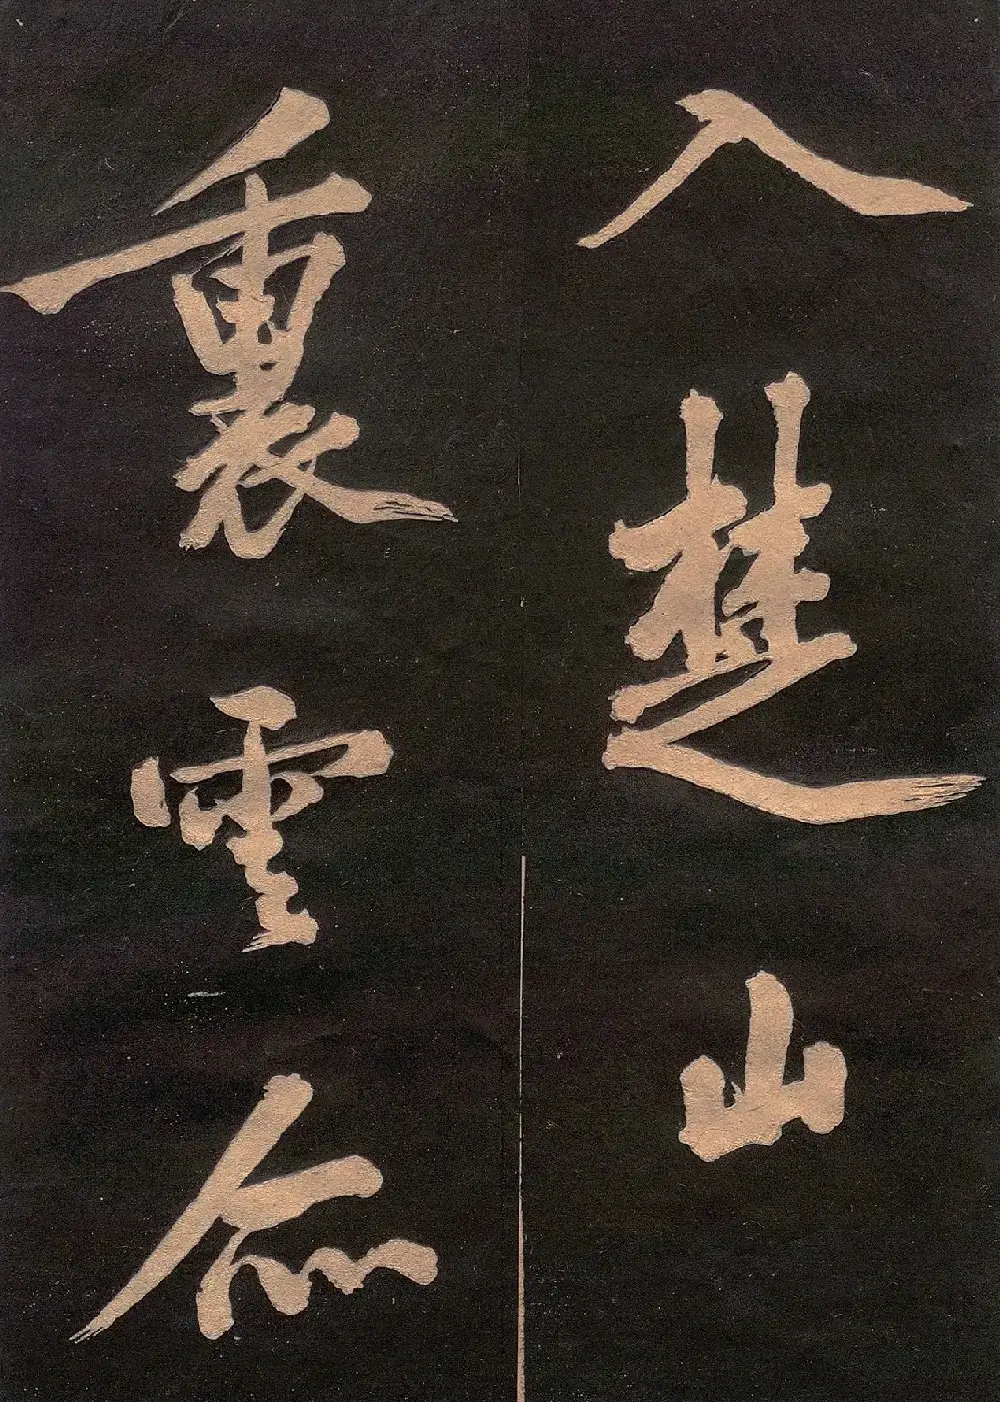 入楚山
裏雲亦